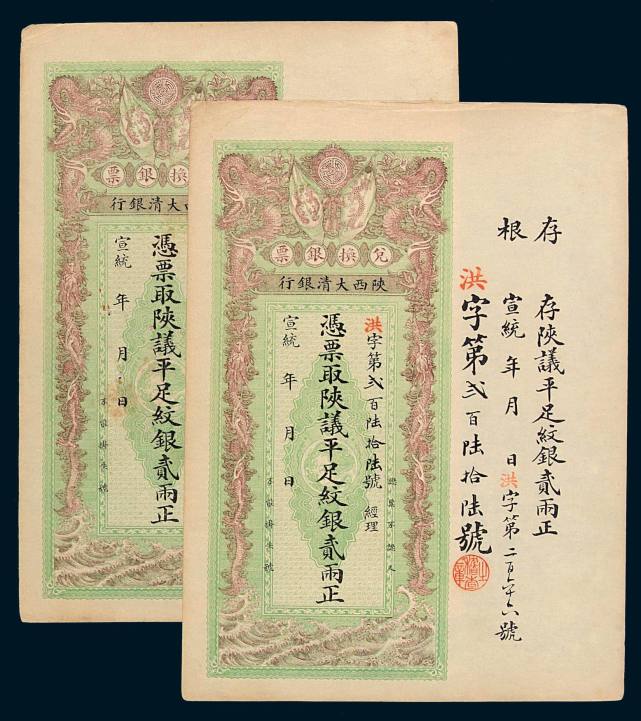 票銀換
行銀清大西
憑票取陝議平足紋銀貳兩正
宣統 年 月 日
不取掛失號
票銀換兌
行銀清大西陝
洪字第弍百陸拾陸號 經理
憑票取陝議平足紋銀貳兩正
宣統 年 月 日
認票不認人
不取掛失號
存根
存陝議平足紋銀貳兩正
宣統 年 月 日 洪字第二百六十六號
洪字第弍百陸拾陸號